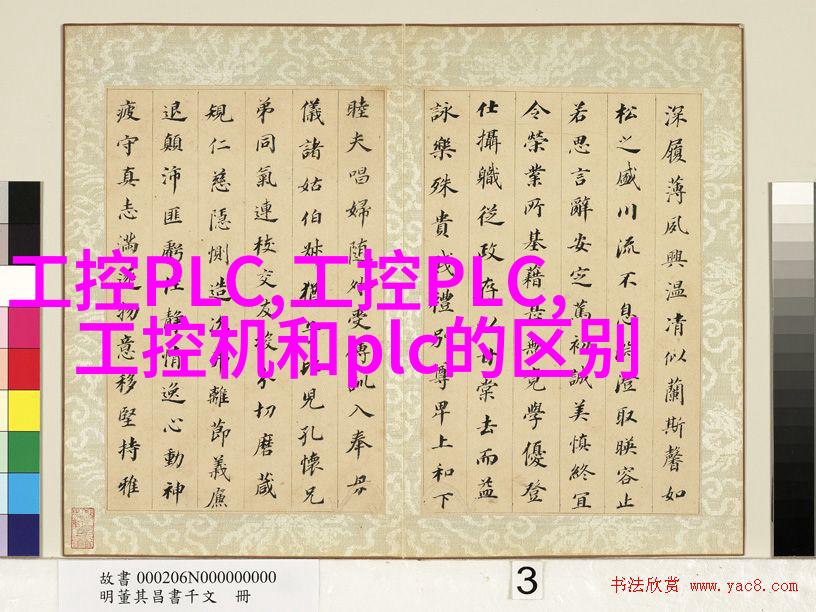 深履薄夙興温凊似蘭斯馨如
松之盛川流不息淵澄取暎容止
若思言辭安定篤初誠美慎終宜
令榮業所基籍甚無竟學優登
仕攝職從政存以甘棠去而益
詠樂殊貴賤禮別尊卑上和下
睦夫唱婦随外受傅訓入奉母
儀諸姑伯叔猶子比兒孔懷兄
弟同氣連枝交友投分切磨箴
規仁慈隱惻造次弗離節義廉
退顛沛匪虧性靜情逸心動神
疲守真志滿逐物意移堅持雅
工控PLC,工控PLC,
工控机和plc的区别
故書 000206N000000000
明董其昌書千文 冊
3
书法欣赏 www.yac8.com